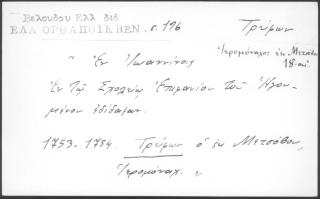 Βελουδου Ελλ διδ
ΕΛΛ ΟΡΘΑΠΟΙΚ ΒΕΝ. σ. 196
Τρύφων
Ἱερομόναχος ἐκ Μετσόβου
18-αἰ.
" Ἐν Ἰωαννίνοις
Ἐν τῇ Σχολῇ Ἐπιφανίου τοῦ Ἡγου-
μένου ἐδίδαξεν.
1753-1754. Τρύφων ὁ ἐκ Μετσόβου,
Ἱερομόναχ.